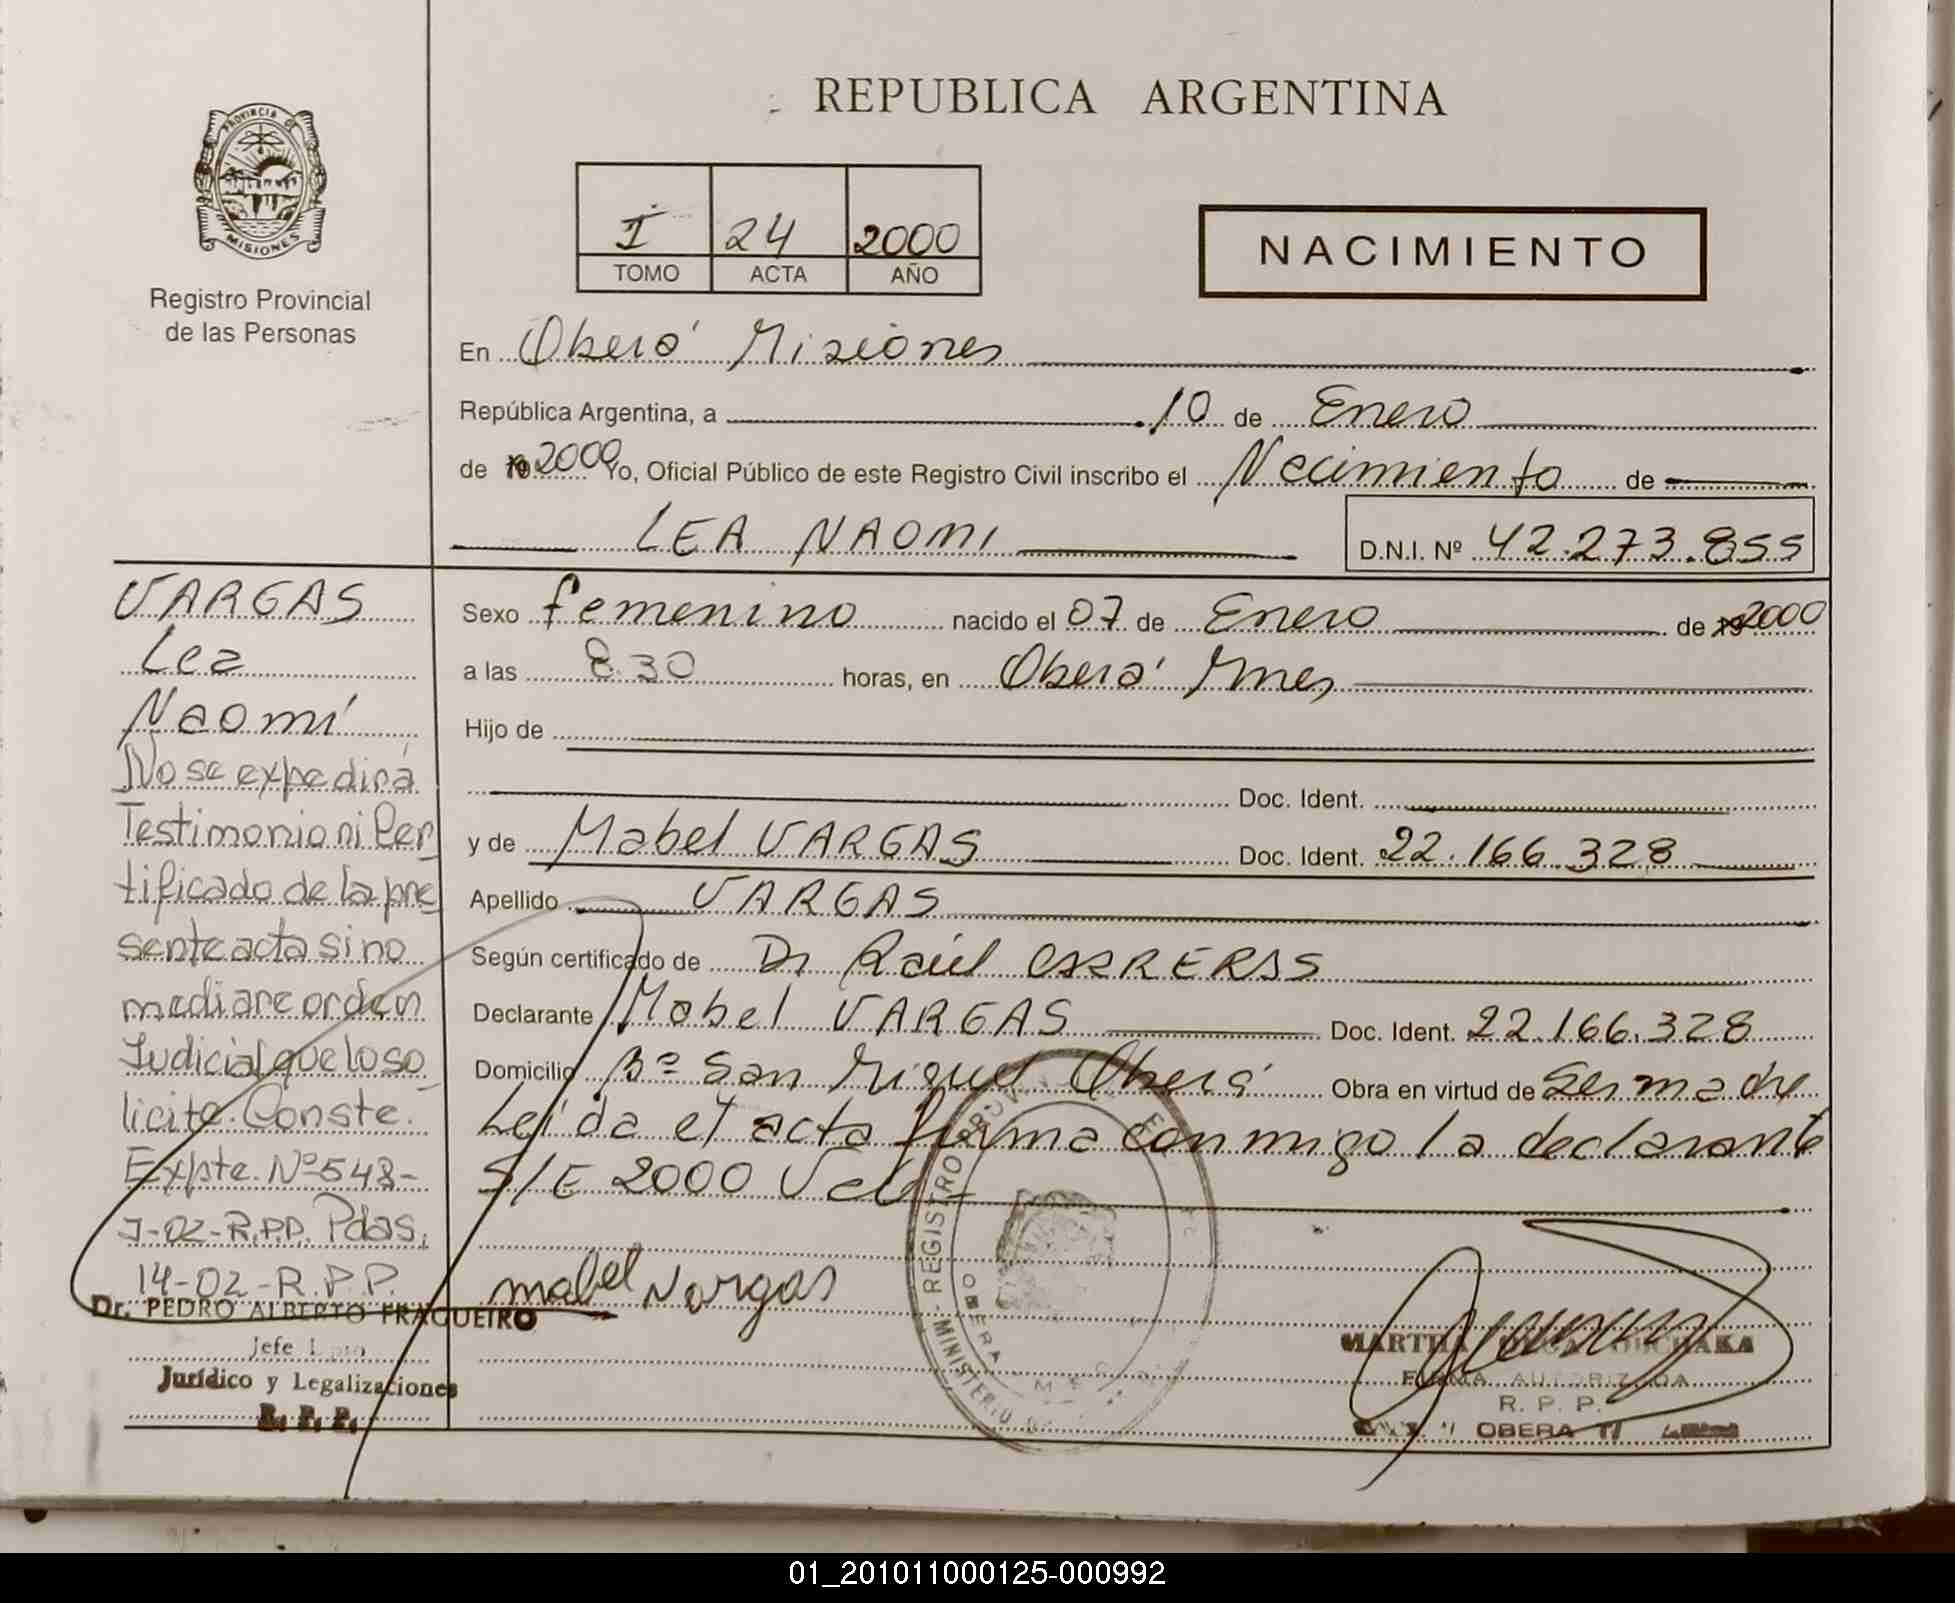 REPUBLICA ARGENTINA
PROVINCIA DE
MISIONES
Registro Provincial
de las Personas
I 24 2000
TOMO ACTA AÑO
NACIMIENTO
En Oberá Misiones
República Argentina, a 10 de Enero
de 19 2000 Yo, Oficial Público de este Registro Civil inscribo el Nacimiento de
LEA NAOMI D.N.I. Nº 42.273.855
VARGAS
Lea
Naomí
No se expedirá
Testimonio ni Cer
tificado de la pre
sente acta si no
mediare orden
Judicial que lo so
licite. Conste.
Expte. Nº 548-
J-02-R.P.P. Pdas,
14-02-R.P.P.
Dr. PEDRO ALBERTO FRAGUEIRO
Jefe
Jurídico y Legalizaciones
R. P. P.
Sexo femenino nacido el 07 de Enero de 19 2000
a las 8.30 horas, en Oberá Mnes
Hijo de
Doc. Ident.
y de Mabel VARGAS Doc. Ident. 22.166.328
Apellido VARGAS
Según certificado de Dr Raúl CARRERAS
Declarante Mabel VARGAS Doc. Ident. 22.166.328
Domicilio Bº San Miguel Oberá Obra en virtud de Ser madre
Leída el acta firma conmigo la declarante
S/E 2000 Vale
mabel Vargas
REGISTRO PROV
OBERA
MINISTERIO DE
MARTHA
FIRMA AUTORIZADA
R. P. P.
OBERA
01_201011000125-000992